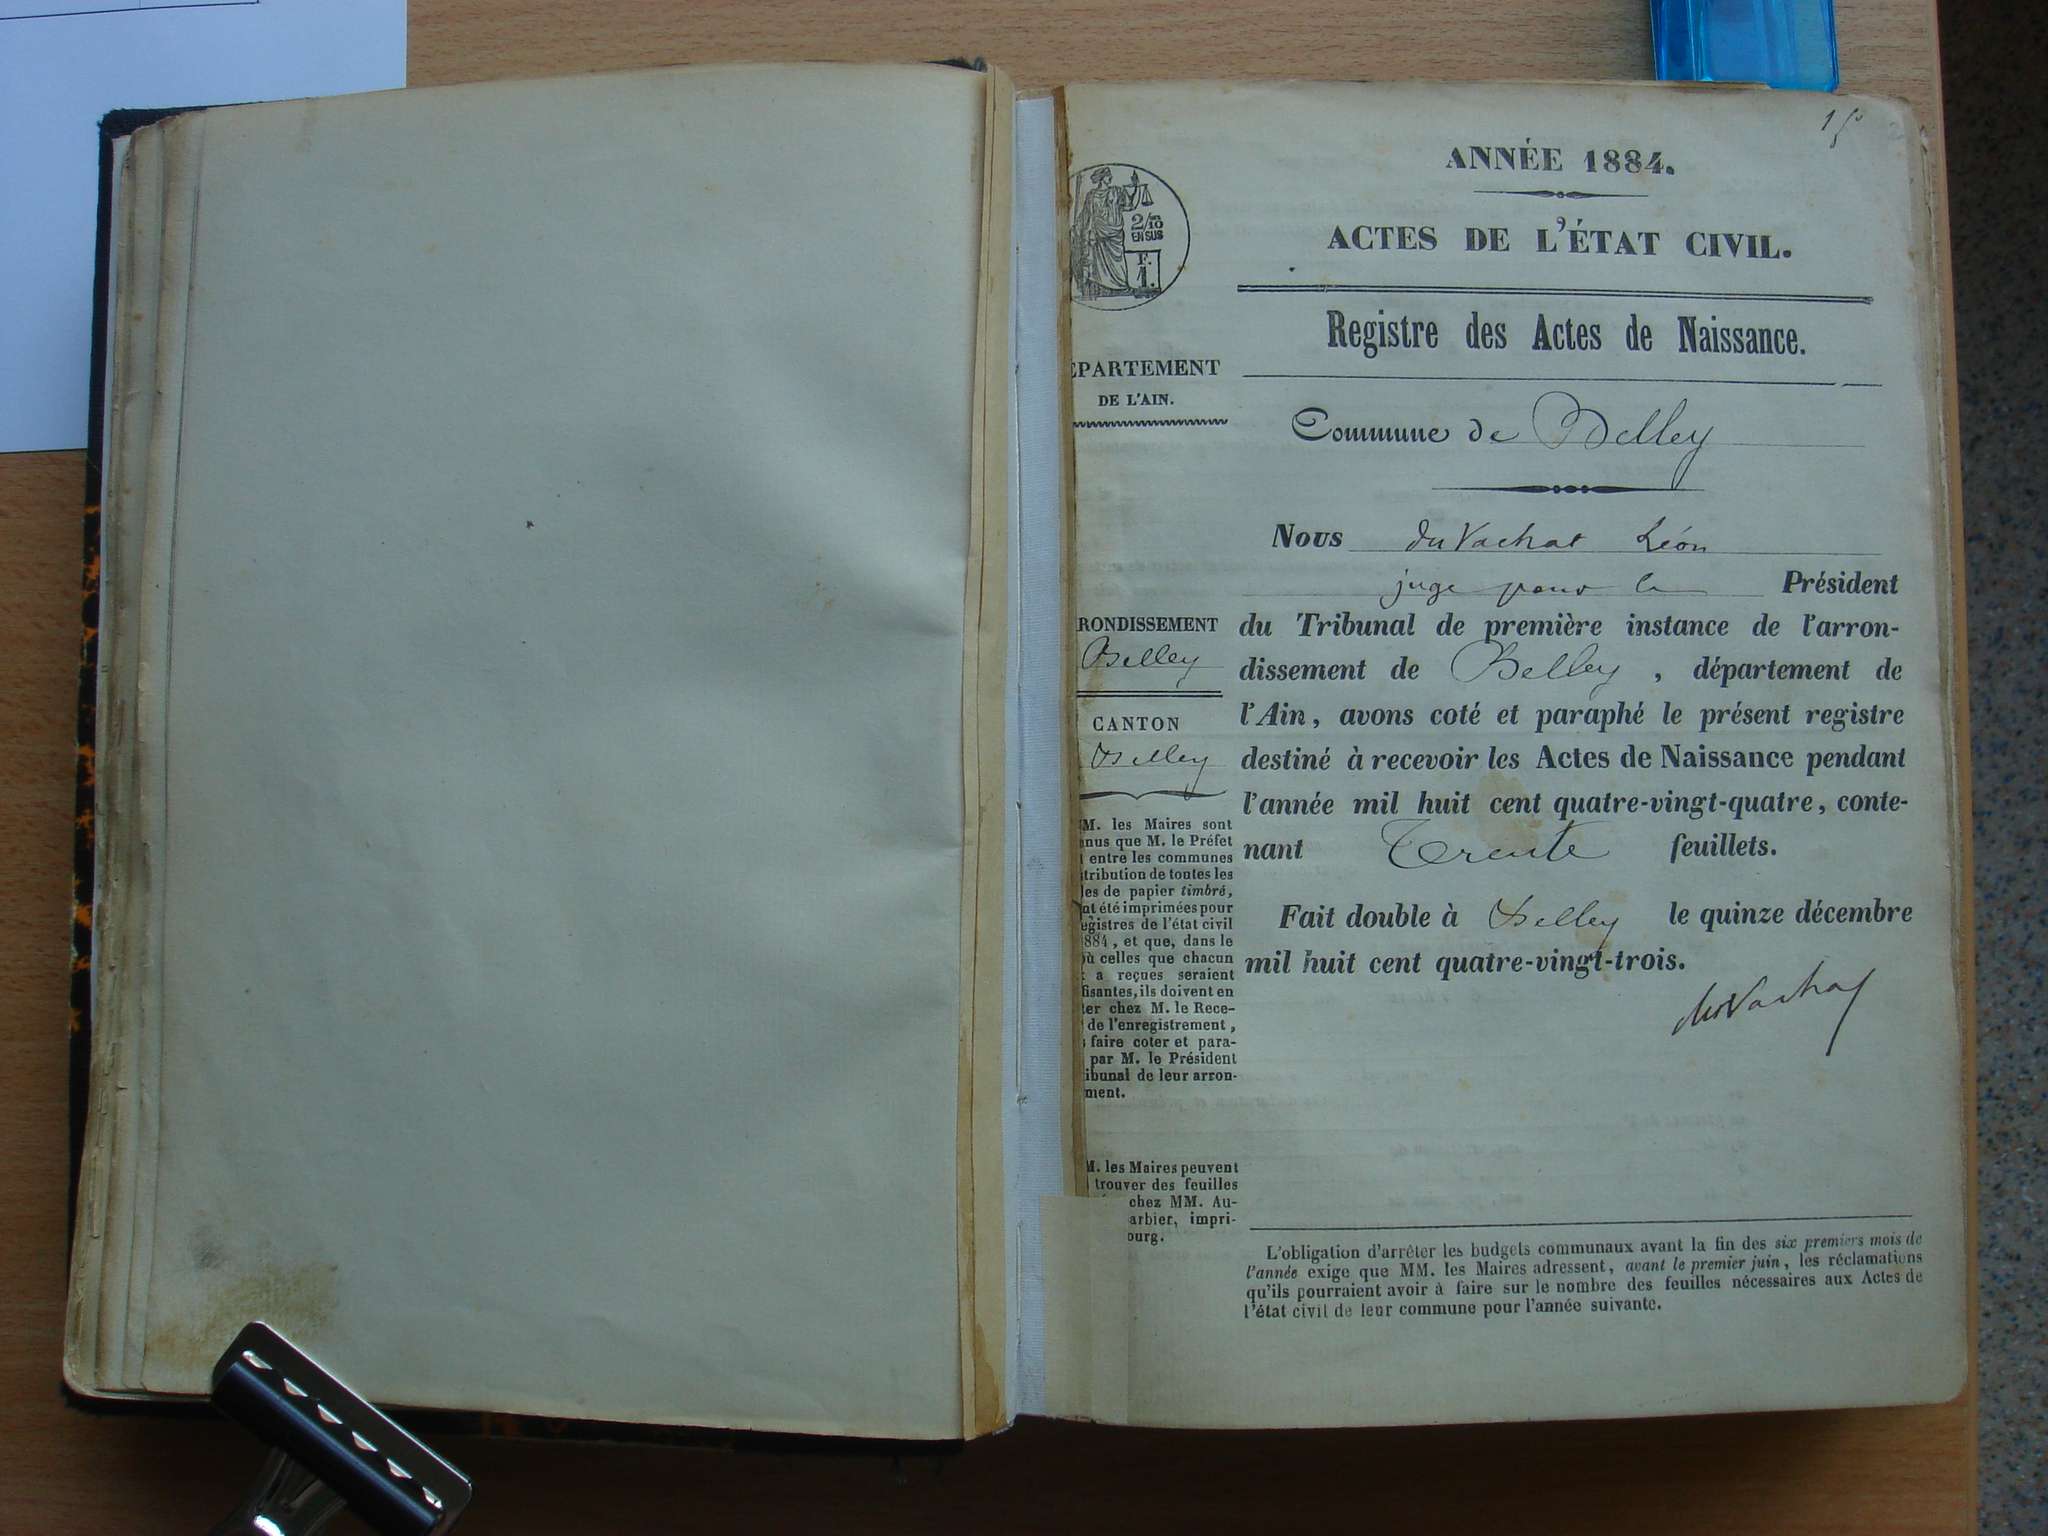 1
ANNÉE 1884.
ACTES DE L'ÉTAT CIVIL.
2/10
EN SUS
F.
1.
Registre des Actes de Naissance.
ÉPARTEMENT
DE L'AIN.
Commune de Belley
Nous du Vachat Léon
juge pour le Président
RONDISSEMENT
Belley
du Tribunal de première instance de l'arron-
dissement de Belley, département de
l'Ain, avons coté et paraphé le présent registre
destiné à recevoir les Actes de Naissance pendant
l'année mil huit cent quatre-vingt-quatre, conte-
nant Trente feuillets.
Fait double à Belley le quinze décembre
mil huit cent quatre-vingt-trois.
du Vachat
CANTON
Belley
M. les Maires sont
enus que M. le Préfet
t entre les communes
stribution de toutes les
les de papier timbré,
nt été imprimées pour
egistres de l'état civil
884, et que, dans le
où celles que chacun
x a reçues seraient
fisantes, ils doivent en
ter chez M. le Rece-
de l'enregistrement,
s faire coter et para-
par M. le Président
ibunal de leur arron-
ment.
M. les Maires peuvent
trouver des feuilles
chez MM. Au-
arbier, impri-
ourg.
L'obligation d'arrêter les budgets communaux avant la fin des six premiers mois de
l'année exige que MM. les Maires adressent, avant le premier juin, les réclamations
qu'ils pourraient avoir à faire sur le nombre des feuilles nécessaires aux Actes de
l'état civil de leur commune pour l'année suivante.